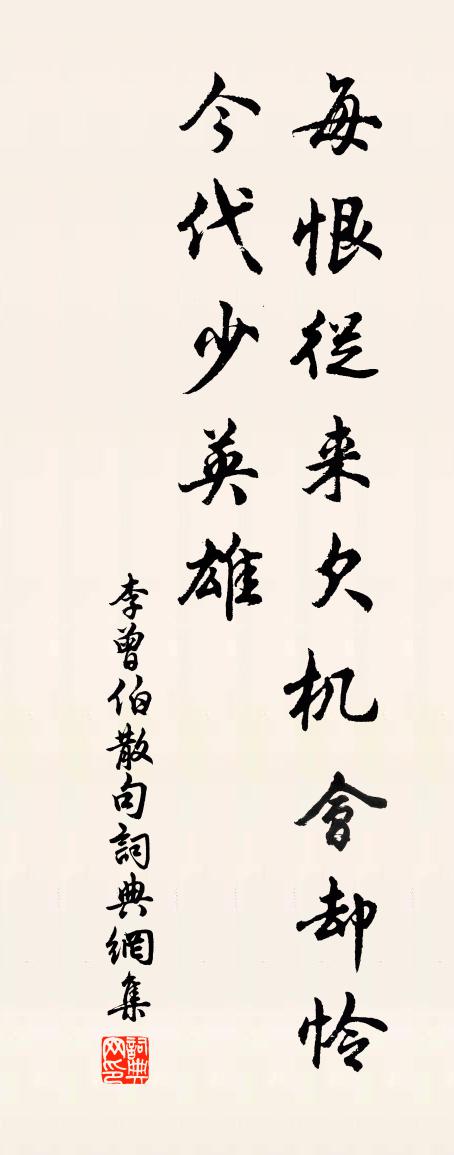 每恨從来欠机會却怜
今代少英雄
李曾伯散句詞典網集
詞典网印